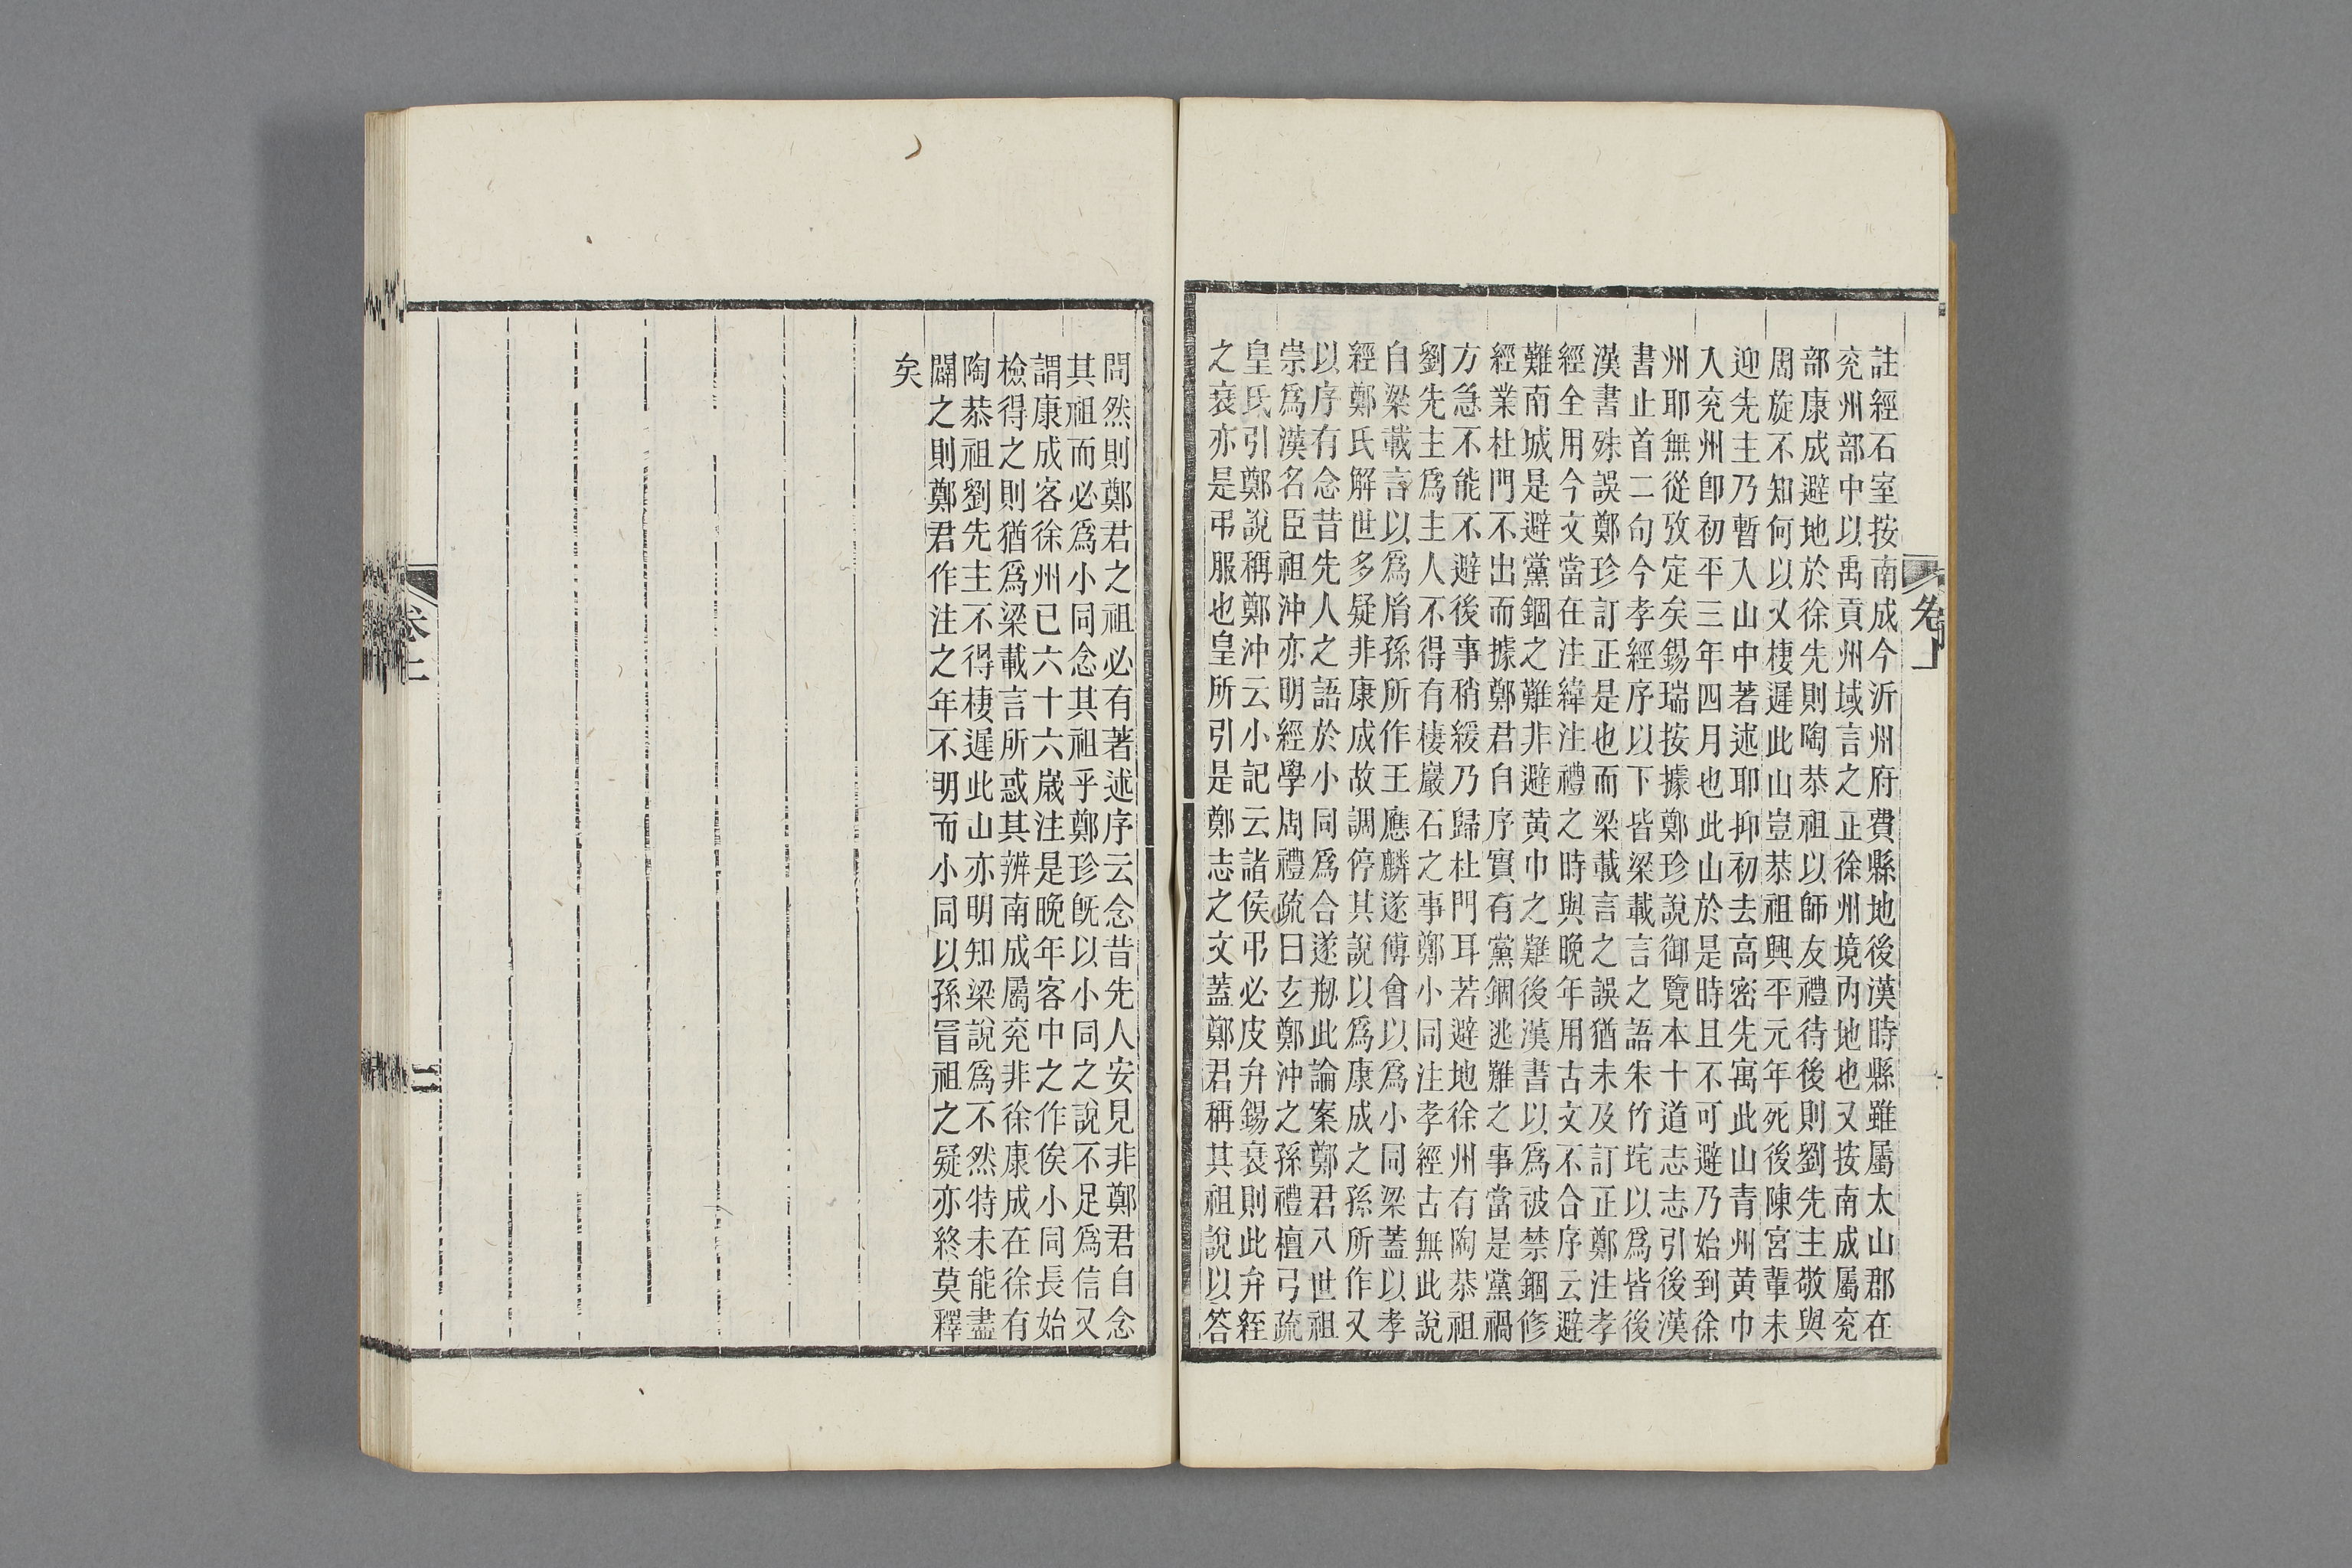 註經石室按南成今沂州府費縣地後漢時縣雖屬太山郡在
兖州部中以禹貢州域言之正徐州境內地也又按南成屬兖
部康成避地於徐先則陶恭祖以師友禮待後則劉先主敬與
周旋不知何以又棲遲此山豈恭祖興平元年死後陳宮輩未
迎先主乃暫入山中著述耶抑初去高密先寓此山青州黄巾
入兖州卽初平三年四月也此山於是時且不可避乃始到徐
州耶無從攷定矣錫瑞按據鄭珍說御覽本十道志志引後漢
書止首二句今孝經序以下皆梁載言之語朱竹垞以爲皆後
漢書殊誤鄭珍訂正是也而梁載言之誤猶未及訂正鄭注孝
經全用今文當在注緯注禮之時與晩年用古文不合序云避
難南城是避黨錮之難非避黄巾之難後漢書以爲被禁錮修
經業杜門不出而據鄭君自序實有黨錮逃難之事當是黨禍
方急不能不避後事稍緩乃歸杜門耳若避地徐州有陶恭祖
劉先主爲主人不得有棲巖石之事鄭小同注孝經古無此說
自梁載言以爲𦙍孫所作王應麟遂傅會以爲小同梁蓋以孝
經鄭氏解世多疑非康成故調停其說以爲康成之孫所作又
以序有念昔先人之語於小同爲合遂剏此論案鄭君八世祖
崇爲漢名臣祖沖亦明經學周禮疏曰玄鄭沖之孫禮檀弓疏
皇氏引鄭說稱鄭沖云小記云諸侯弔必皮弁錫衰則此弁絰
之衰亦是弔服也皇所引是鄭志之文蓋鄭君稱其祖說以答
問然則鄭君之祖必有著述序云念昔先人安見非鄭君自念
其祖而必爲小同念其祖乎鄭珍旣以小同之說不足爲信又
謂康成客徐州已六十六歲注是晩年客中之作俟小同長始
檢得之則猶爲梁載言所惑其辨南成屬兖非徐康成在徐有
陶恭祖劉先主不得棲遲此山亦明知梁說爲不然特未能盡
闢之則鄭君作注之年不明而小同以孫冒祖之疑亦終莫釋
矣
卷上
二